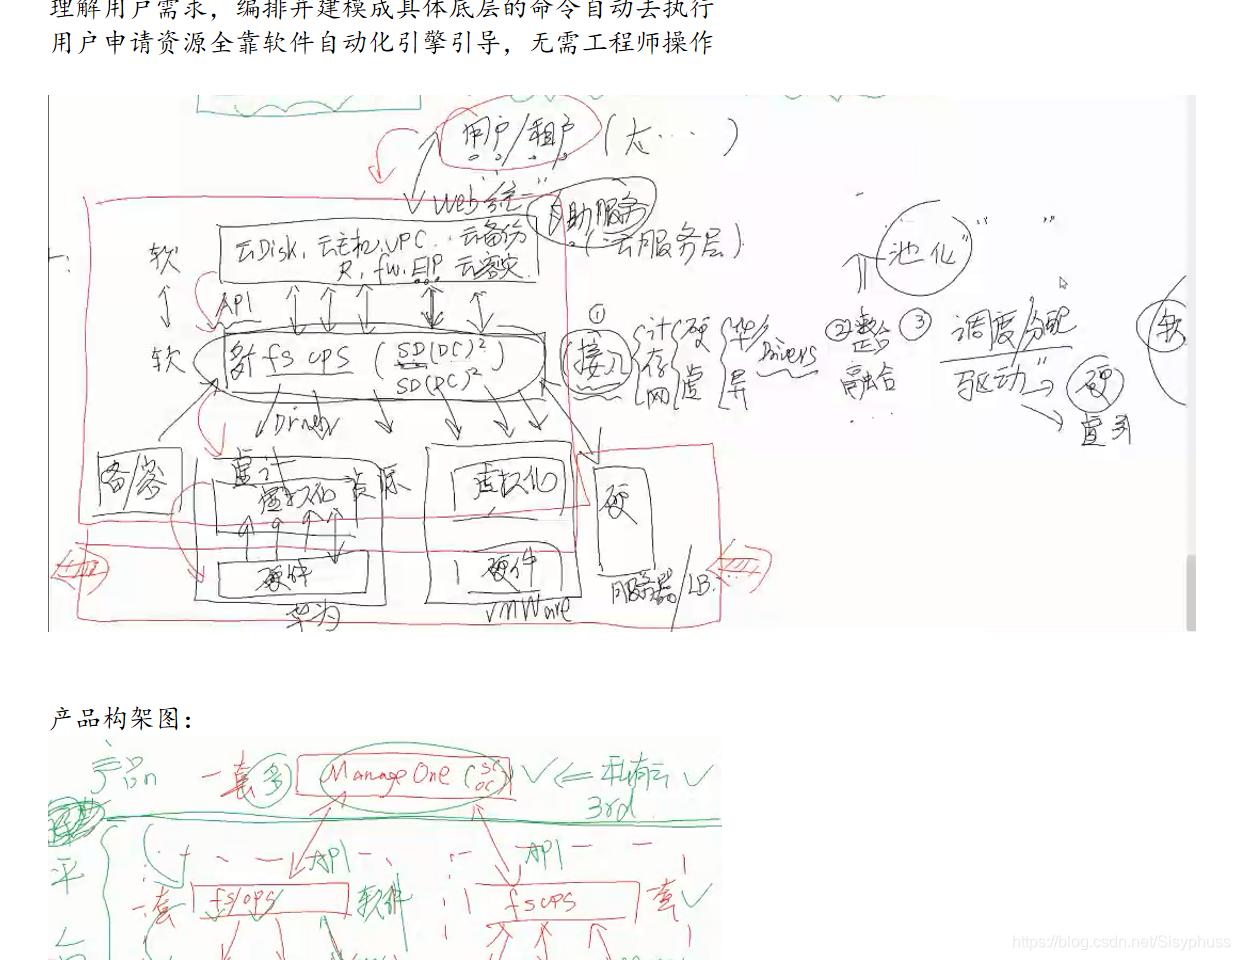 理解用户需求，编排并建模成具体底层的命令自动去执行
用户申请资源全靠软件自动化引擎引导，无需工程师操作
用户/租户
Web
自助服务
(云服务层)
云Disk、云主机、VPC、云备份
R、fw、EIP 云容灾
软
API
软
fs ops (SD(DC)²)
SD(DC)²
①
接入
计 存 网
硬 虚
华 异
Drivers
②整合
融合
③
调度/分配
驱动
硬
池化
软
Driver
备/容
虚拟化
资源
硬件
华为
虚拟化
硬件
VMWare
硬
服务器/LB
产品构架图：
产品
一套 多
ManageOne (SC OC)
私有云
3rd
API
API
平
一套
fs/ops
软件
fs ops
套
https://blog.csdn.net/Sisyphuss